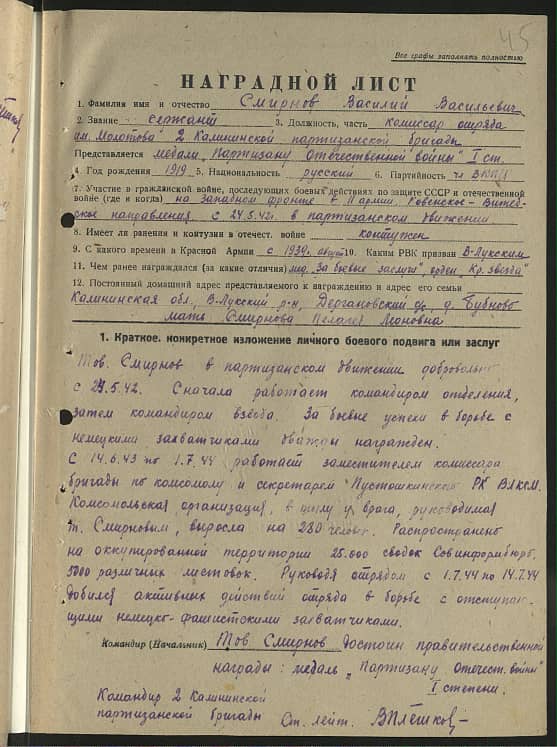 45
Все графы заполнять полностью
НАГРАДНОЙ ЛИСТ
1. Фамилия имя и отчество Смирнов Василий Васильевич
2. Звание сержант 3. Должность, часть комиссар отряда
им. Молотова 2 Калининской партизанской бригады
Представляется медали „Партизану Отечественной войны" I ст.
4. Год рождения 1919 5. Национальность русский 6. Партийность чл ВКП/б
7. Участие в гражданской войне, последующих боевых действиях по защите СССР и отечественной
войне (где и когда) на Западном фронте в 11 армии. Ровенское-Витеб-
ское направления с 24.5.42г. в партизанском движении
8. Имеет ли ранения и контузии в отечест. войне контужен
9. С какого времени в Красной Армии с 1939г. август 10. Каким РВК призван В-Лукским
11. Чем ранее награждался (за какие отличия) мед. „За боевые заслуги" орден „Кр. звезда"
12. Постоянный домашний адрес представляемого к награждению и адрес его семьи
Калининская обл., В-Лукский р-н, Дергановский с/с, д. Бубново
мать Смирнова Пелагея Леоновна
1. Краткое, конкретное изложение личного боевого подвига или заслуг
Тов. Смирнов в партизанском движении добровольно
с 24.5.42. Сначала работает командиром отделения,
затем командиром взвода. За боевые успехи в борьбе с
немецкими захватчиками дважды награжден.
С 14.6.43 по 1.7.44 работает заместителем комиссара
бригады по комсомолу и секретарем Пустошкинского РК ВЛКСМ.
Комсомольская организация, в тылу у врага, руководимая
т. Смирновым, выросла на 280 человек. Распространено
на оккупированной территории 25.000 сводок Совинформбюро,
5000 различных листовок. Руководя отрядом с 1.7.44 по 14.7.44
добился активных действий отряда в борьбе с отступаю-
щими немецко-фашистскими захватчиками.
Командир (Начальник) Тов Смирнов достоин правительственной
награды: медаль „Партизану Отечест. войны"
I степени.
Командир 2 Калининской
партизанской бригады Ст. лейт. В Плешков